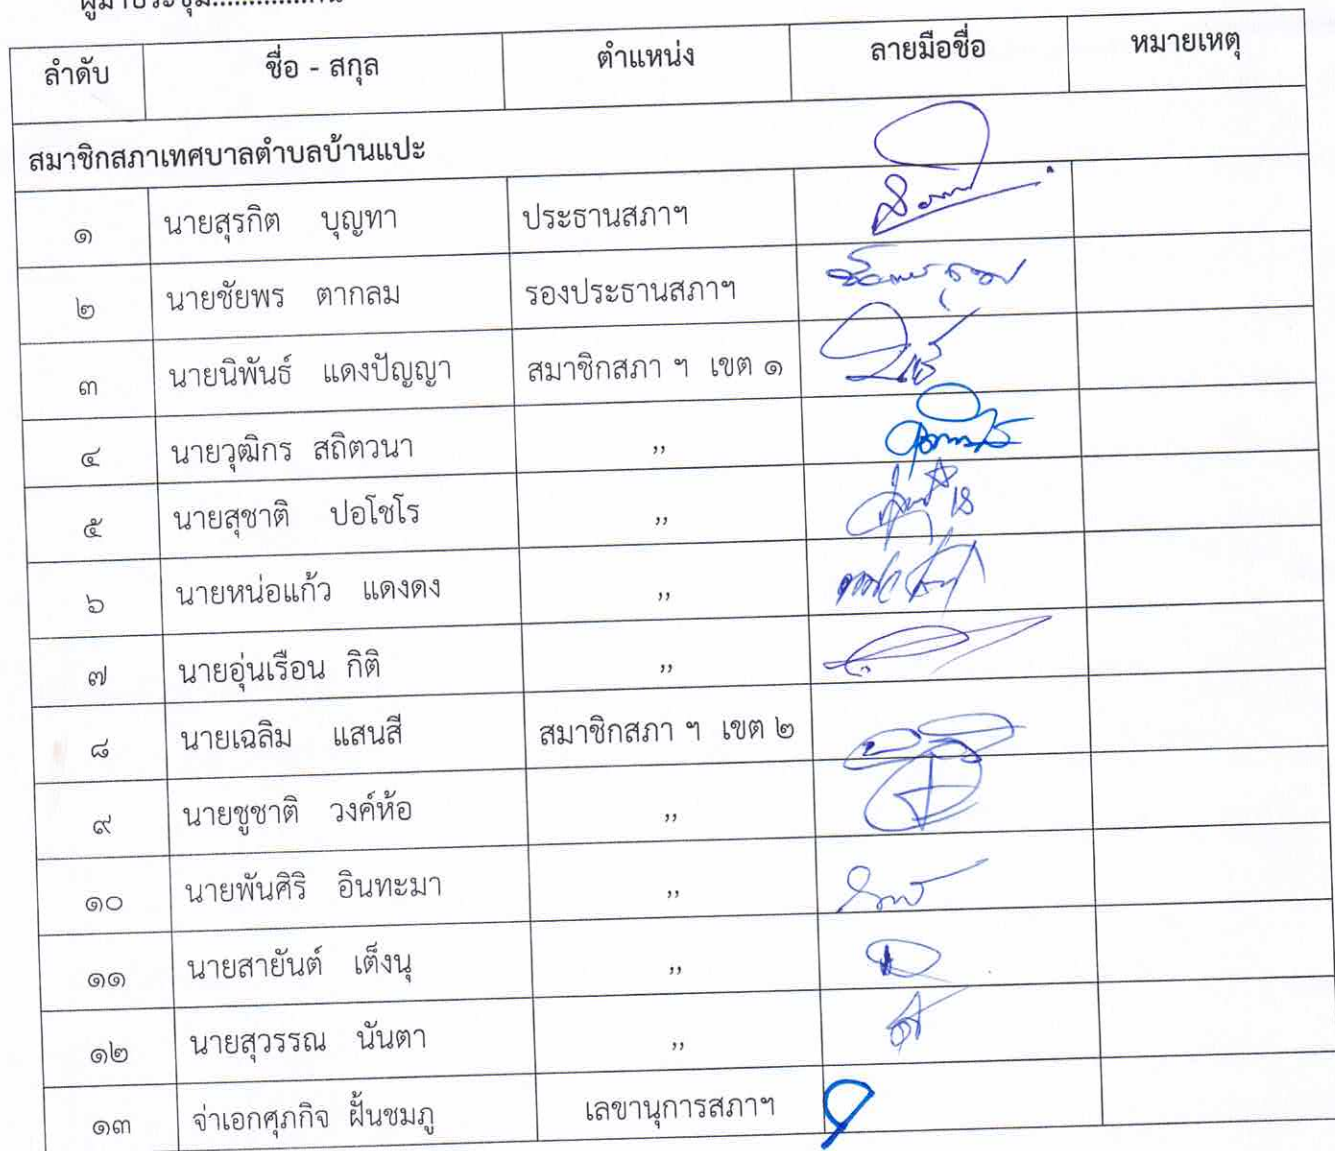 ผู้มาประชุม..............คน
ลำดับ ชื่อ - สกุล ตำแหน่ง ลายมือชื่อ หมายเหตุ
สมาชิกสภาเทศบาลตำบลบ้านแปะ
๑ นายสุรกิต บุญทา ประธานสภาฯ
๒ นายชัยพร ตากลม รองประธานสภาฯ
๓ นายนิพันธ์ แดงปัญญา สมาชิกสภา ฯ เขต ๑
๔ นายวุฒิกร สถิตวนา ,,
๕ นายสุชาติ ปอโชโร ,,
๖ นายหน่อแก้ว แดงดง ,,
๗ นายอุ่นเรือน กิติ ,,
๘ นายเฉลิม แสนสี สมาชิกสภา ฯ เขต ๒
๙ นายชูชาติ วงค์ห้อ ,,
๑๐ นายพันศิริ อินทะมา ,,
๑๑ นายสายันต์ เต็งนุ ,,
๑๒ นายสุวรรณ นันตา ,,
๑๓ จ่าเอกศุภกิจ ฝั้นชมภู เลขานุการสภาฯ